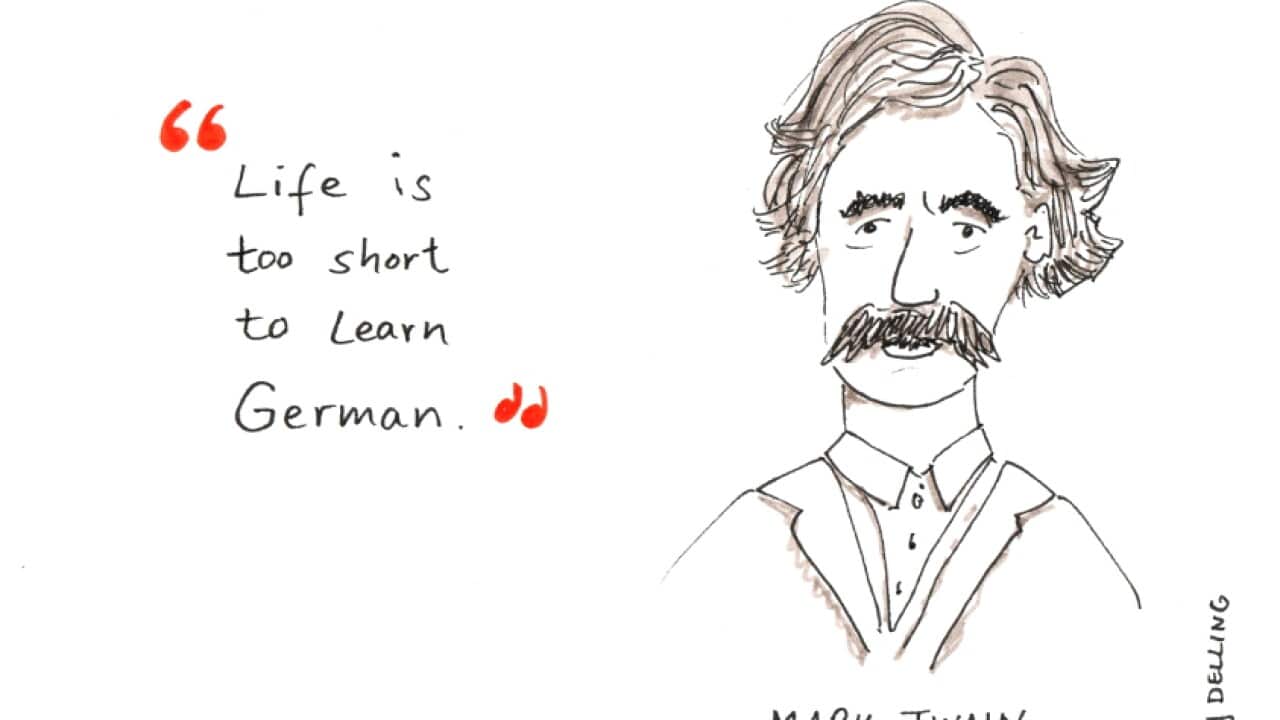 “Life is
too short
to Learn
German.”
MARK TWAIN
DELLING